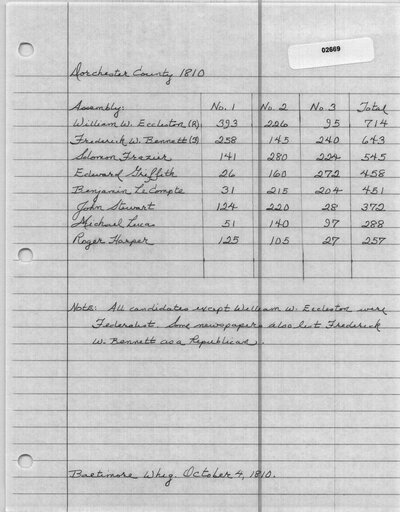 02669
Dorchester County 1810
Assembly: No. 1 No. 2 No. 3 Total
William W. Eccleston (R) 393 226 95 714
Frederick W. Bennett (F) 258 145 240 643
Solomon Frazier 141 280 224 545
Edward Griffith 26 160 272 458
Benjamin LeCompte 31 215 204 451
John Stewart 124 220 28 372
Michael Lucas 51 140 97 288
Roger Harper 125 105 27 257
Note: All candidates except William W. Eccleston were
Federalist. Some newspapers also list Frederick
W. Bennett as a Republican.
Baltimore Whig. October 4, 1810.